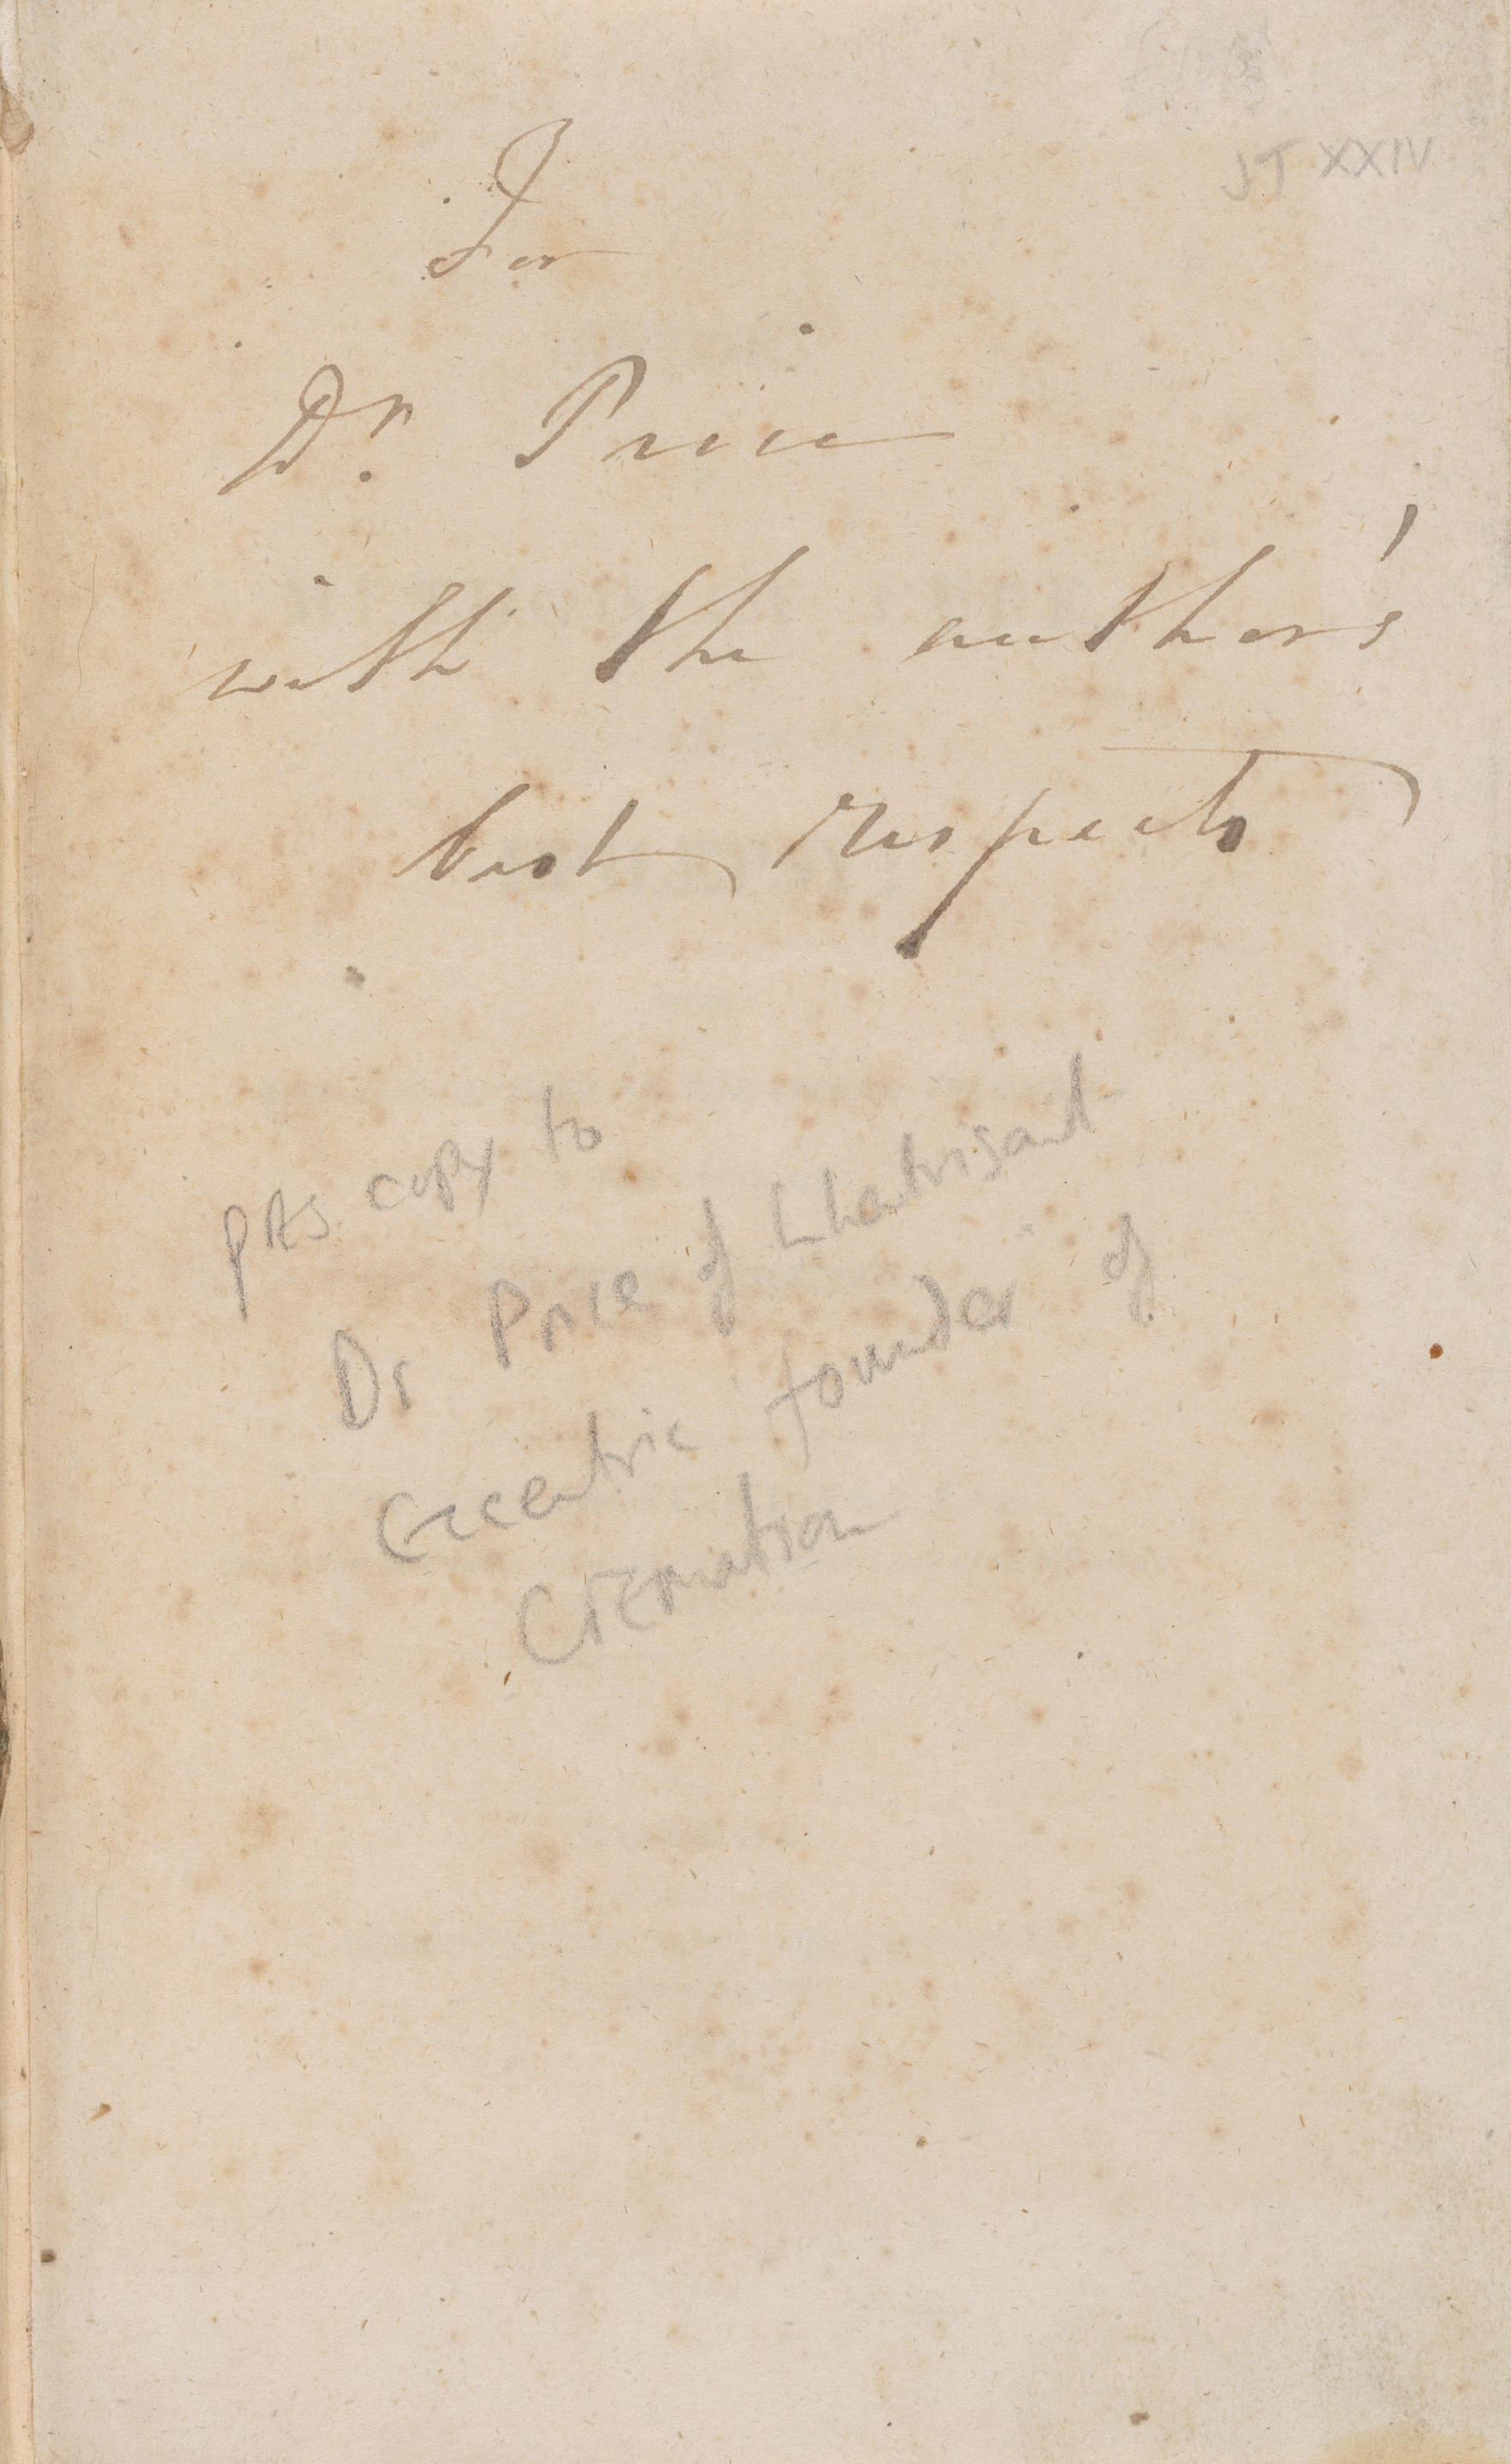 JT XXIV
For
Dr. Price
with the author's
best respects
PRES copy to
Dr Price of Llantrisant
Eccentric founder of
Cremation